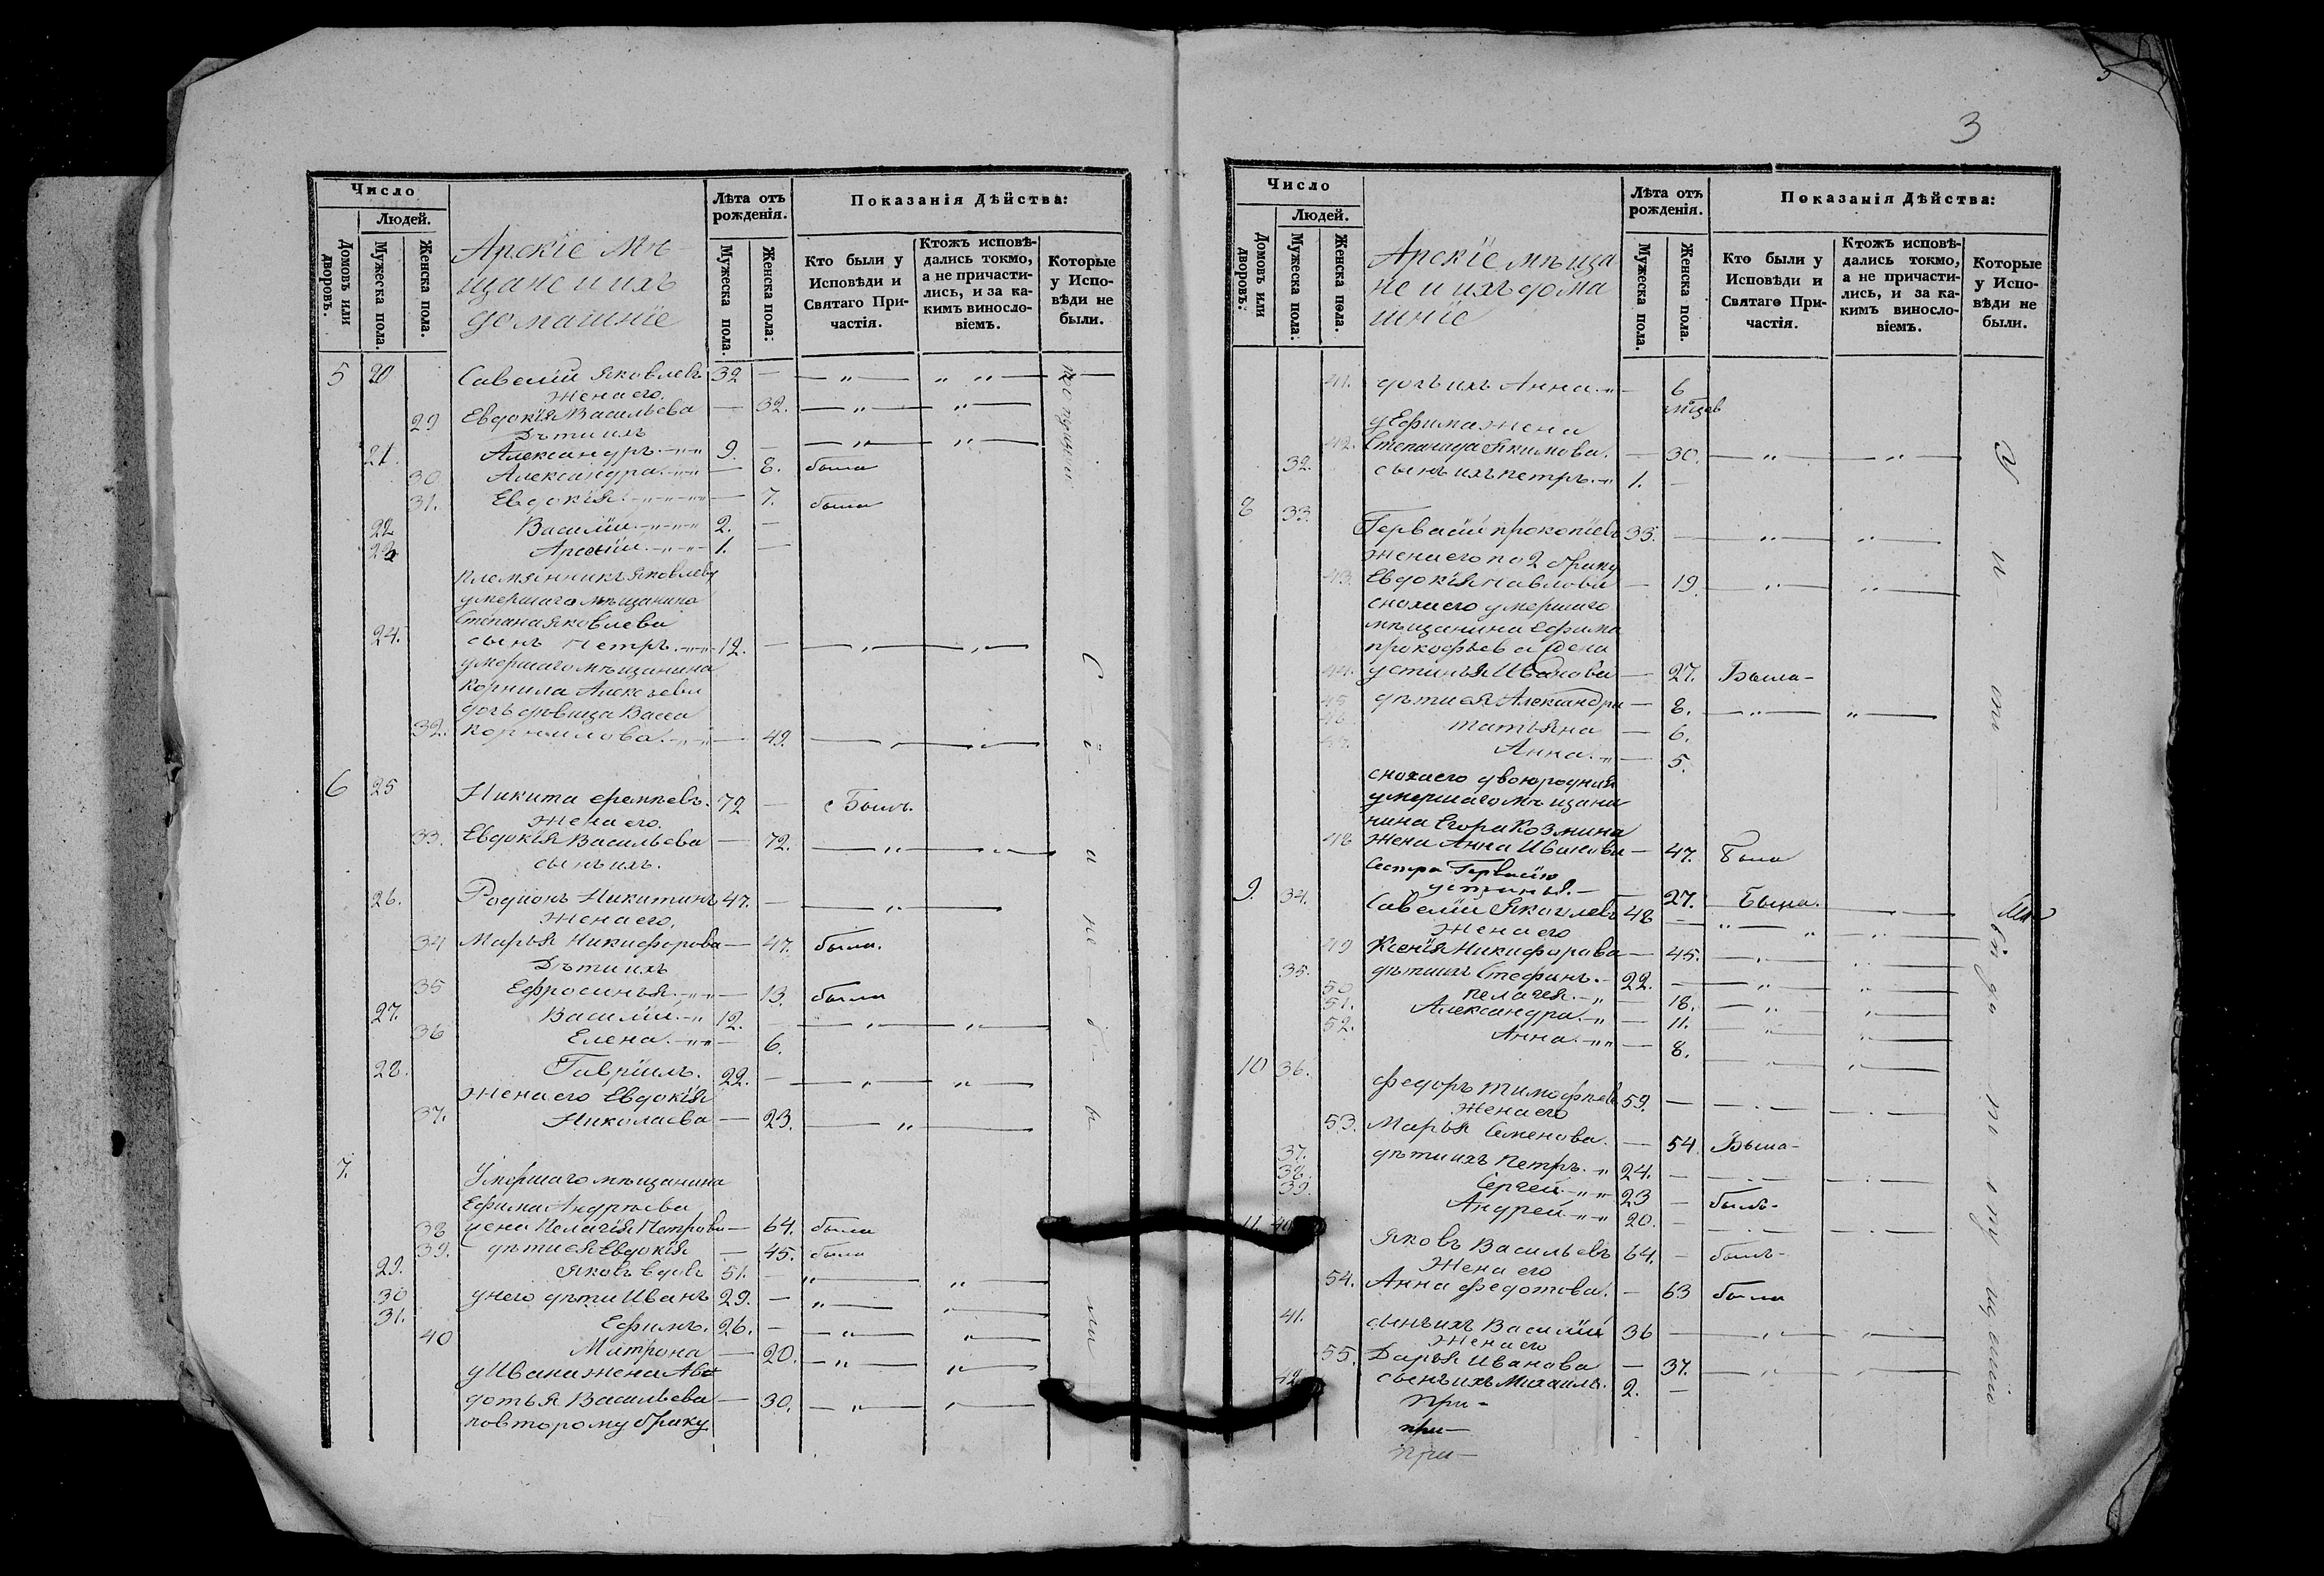 3
Число
Людей.
Домовъ или дворовъ.
Мужеска пола.
Женска пола.
Арскіе мѣ-
щане и ихъ
домашніе
Лѣта отъ рожденія.
Мужеска пола.
Женска пола.
Показанія Дѣйства:
Кто были у Исповѣди и Святаго Причастія.
Ктожъ исповѣ-
дались токмо,
а не причасти-
лись, и за ка-
кимъ винословіемъ.
Которые у Исповѣди не были.
5 20 Савелій Яковлевъ 32 — — " — " " —
жена его.
29 Евдокія Васильева — 32. — " — " —
Дѣти ихъ
21. Александръ 9. — — " — " —
30 Александра — 8. была
31. Евдокія — 7. была
22 Василій 2. —
23 Арсеній 1. —
племянникъ Яковлеву
умершаго мѣщанина
Степана Яковлева
24. сынъ Петръ 12. — — " — " —
умершаго мѣщанина
Корнила Алексѣева
дочь дѣвица Васса
32. Корнилова — 49. — " — " —
6 25 Никита 72 — Былъ
жена его.
33. Евдокія Васильева — 72. — " — " —
сынъ ихъ.
26. Родіонъ Никитинъ 47. — — " —
жена его.
34 Марья Никифорова — 47. была.
Дѣти ихъ
35 Ефросинья — 13. была
27. Василій 12. — — " — " —
36 Елена — 6.
28. Гавріилъ. 22. — — " — " —
жена его Евдокія
37. Николаева — 23. — " —
7. Умершаго мѣщанина
Ефима Андреева
38 жена Пелагія Петрова — 64. была
39. дѣти ея Евдокія — 45. была
29. Яковъ вдовъ 51. — " — " —
30 у него дѣти Иванъ 29. — " — " —
31. Ефимъ. 26. — — " — " —
40 Матрона — 20. — " — " —
у Ивана жена Ав-
дотья Васильева — 30. — " — " —
по второму браку
Число
Людей.
Домовъ или дворовъ.
Мужеска пола.
Женска пола.
Арскіе мѣща
не и ихъ дома
шніе
Лѣта отъ рожденія.
Мужеска пола.
Женска пола.
Показанія Дѣйства:
Кто были у Исповѣди и Святаго Причастія.
Ктожъ исповѣ-
дались токмо,
а не причасти-
лись, и за ка-
кимъ винословіемъ.
Которые у Исповѣди не были.
41. дочь ихъ Анна — 6
у Ефима жена
42. Степанида Якимова. — 30. — " — " —
32. сынъ ихъ Петръ 1. —
8 33. Гервасій Прокопіевъ 33. — — " — " —
жена его по 2 браку
43. Евдокія Павлова — 19. — " — " —
сноха его умершаго
мѣщанина Ефима
Прокофьева
44. Устинья Иванова — 27. Была
45 дѣти ея Александра — 8. — " — " —
46. Татьяна — 6.
47. Анна — 5.
сноха его двоюродная
умершаго мѣщани
нина Егора Козмина
48 жена Анна Иванова — 47. Была
сестра Гервасію
Устинья. — 27. Была.
9. 34. Савелій Яковлевъ 48 — — " —
жена его
49 Ксенія Никифорова — 45. — " — " —
35. дѣти ихъ Стефанъ 22. — — " — " —
50 Пелагея — 18. — " — " —
51. Александра — 11. — " — " —
52. Анна — 8. — " — " —
10 36. Федоръ Тимофеевъ 59. — — " —
жена его
53. Марья Семенова. — 54 Была
37. дѣти ихъ Петръ 24. — — " —
38. Сергей 23 — былъ
39. Андрей 20. — — " —
11. 40 Яковъ Васильевъ 64. — былъ
жена его
54. Анна Федотова. — 63 была
41. сынъ ихъ Василій 36 — — " — " —
жена его
55. Дарья Иванова — 37. — " — " —
42 сынъ ихъ Михаилъ. 2. —
При-
при-
при-